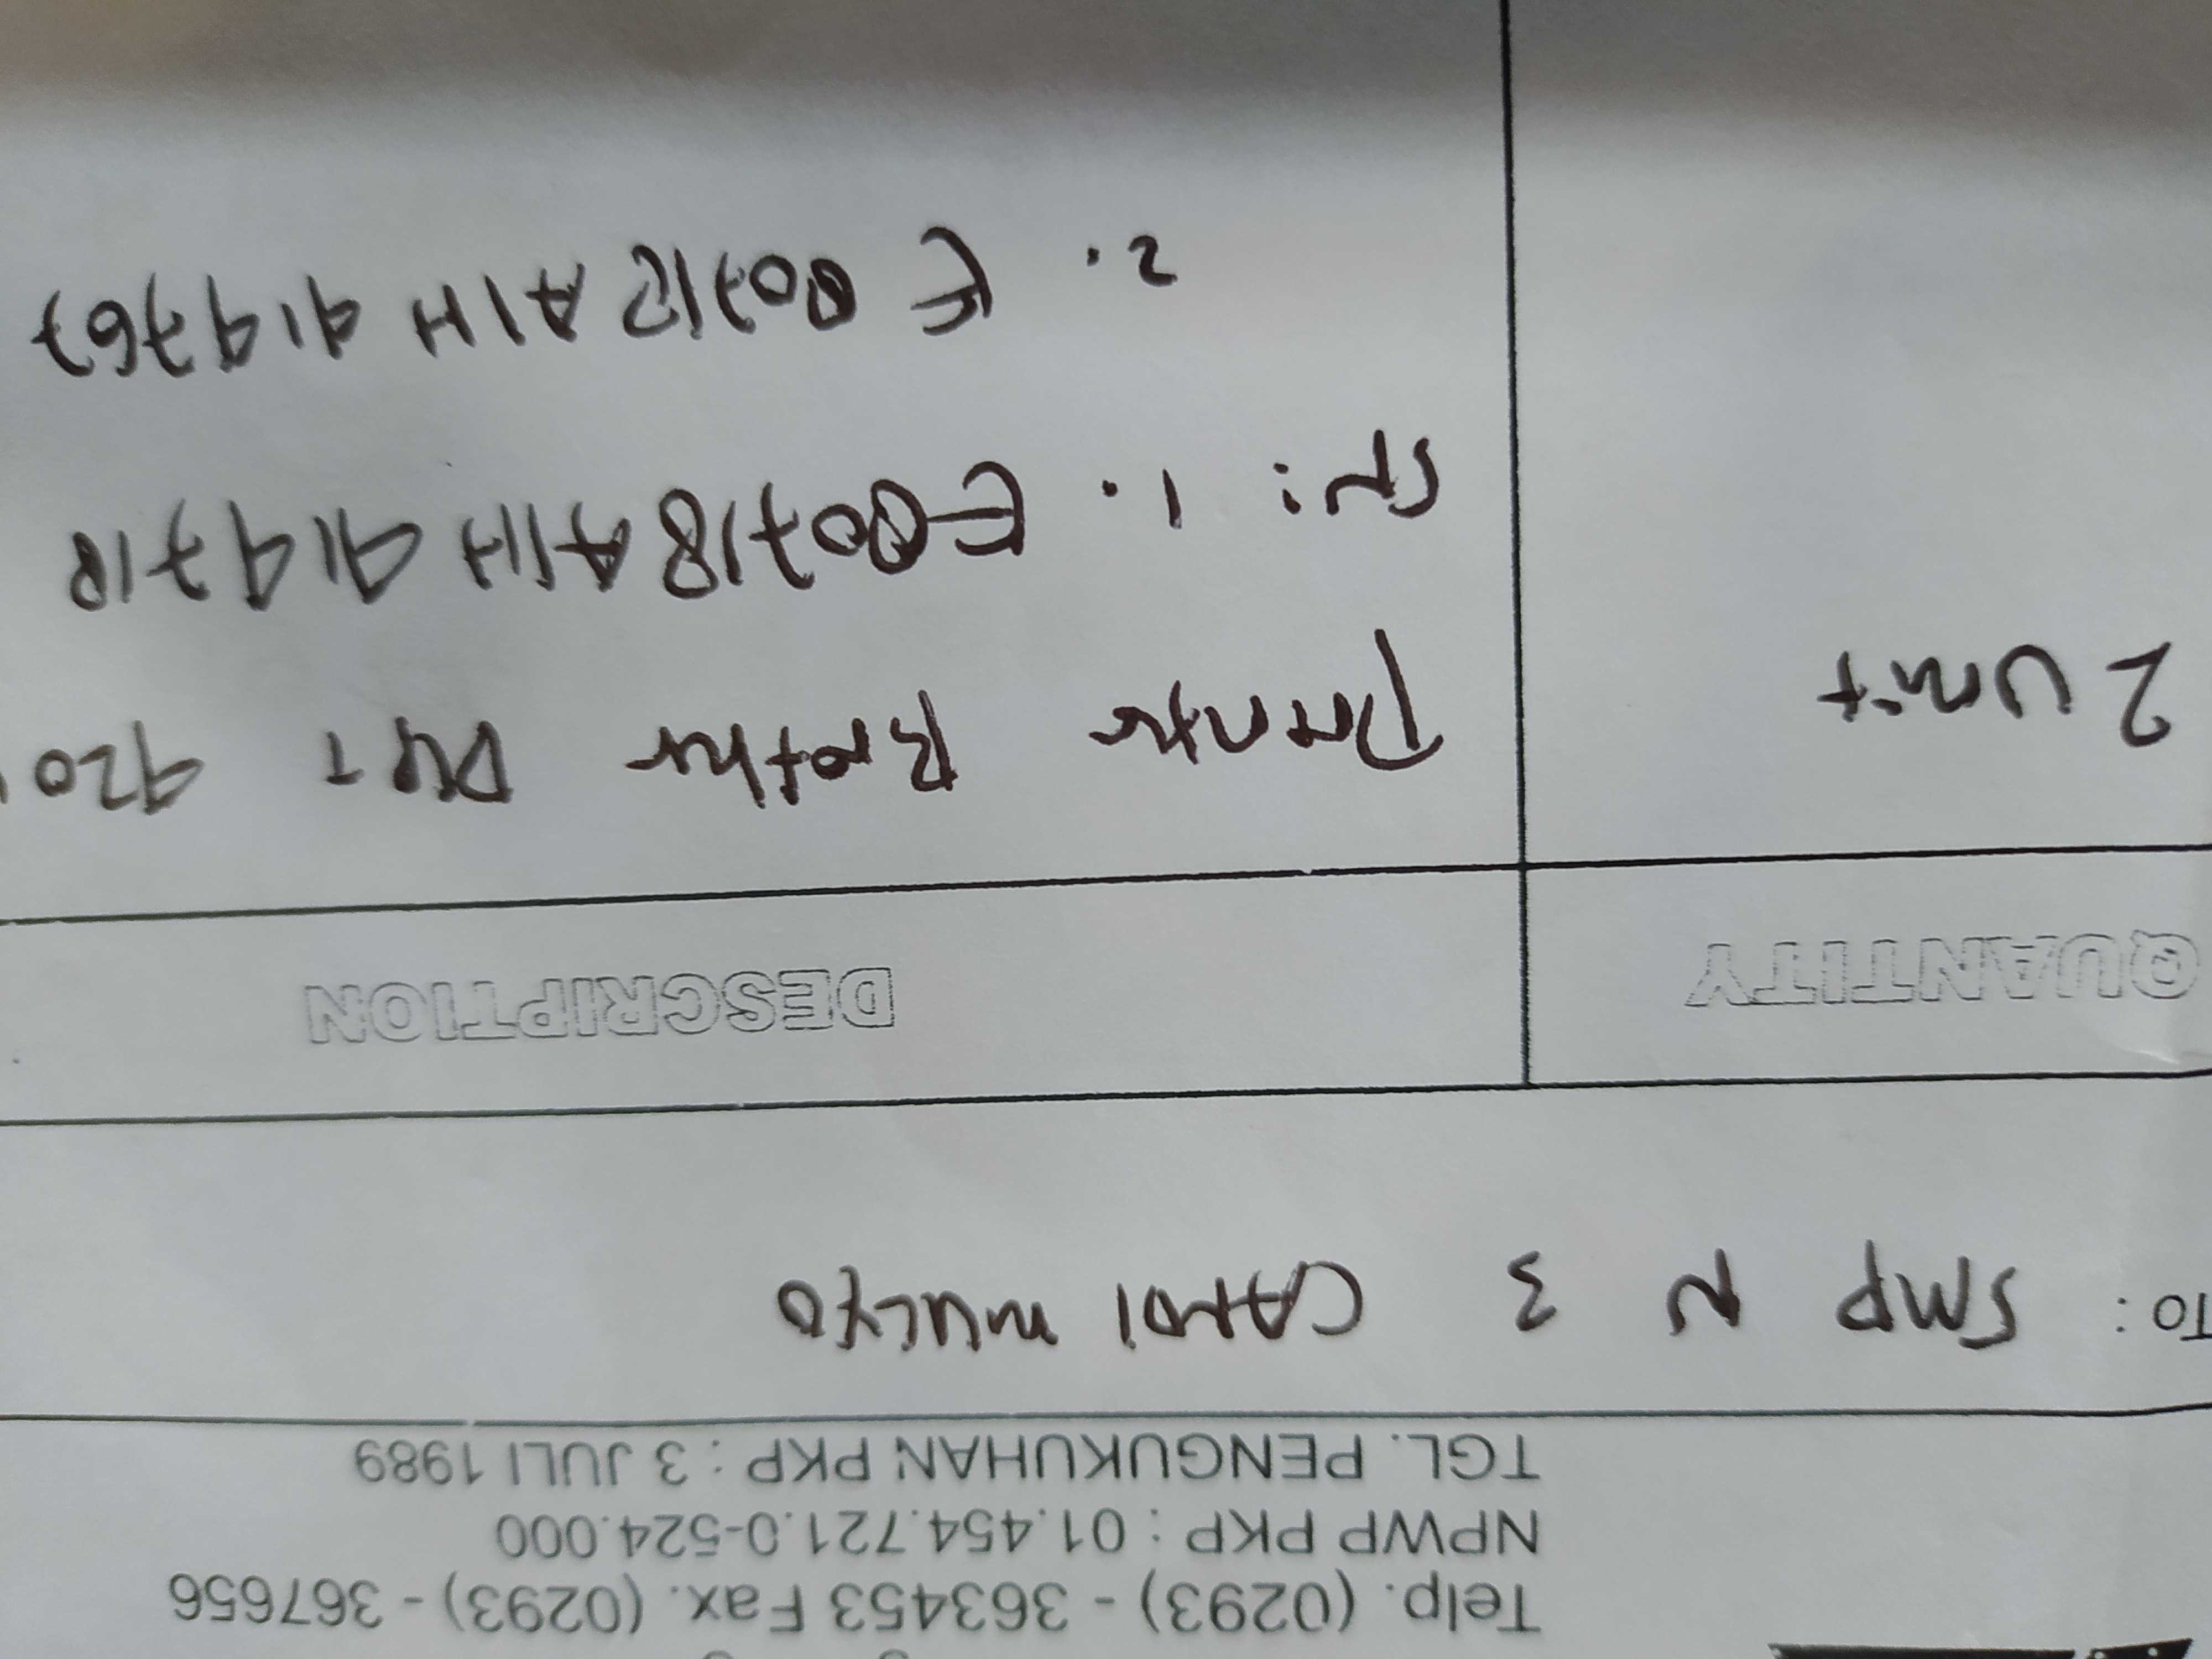 Telp. (0293) - 363453 Fax. (0293) - 367656
NPWP PKP : 01.454.721.0-524.000
TGL. PENGUKUHAN PKP : 3 JULI 1989
TO : SMP N 3 CANDI MULYO
QUANTITY DESCRIPTION
2 Unit Printer Brother 920
SN: 1. E80718A1H919718
2. E80718A1H919767